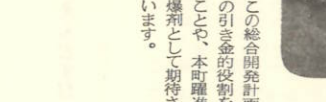 この総合開発計画
の引き金的役割を
ことや、本町躍進
爆剤として期待さ
います。